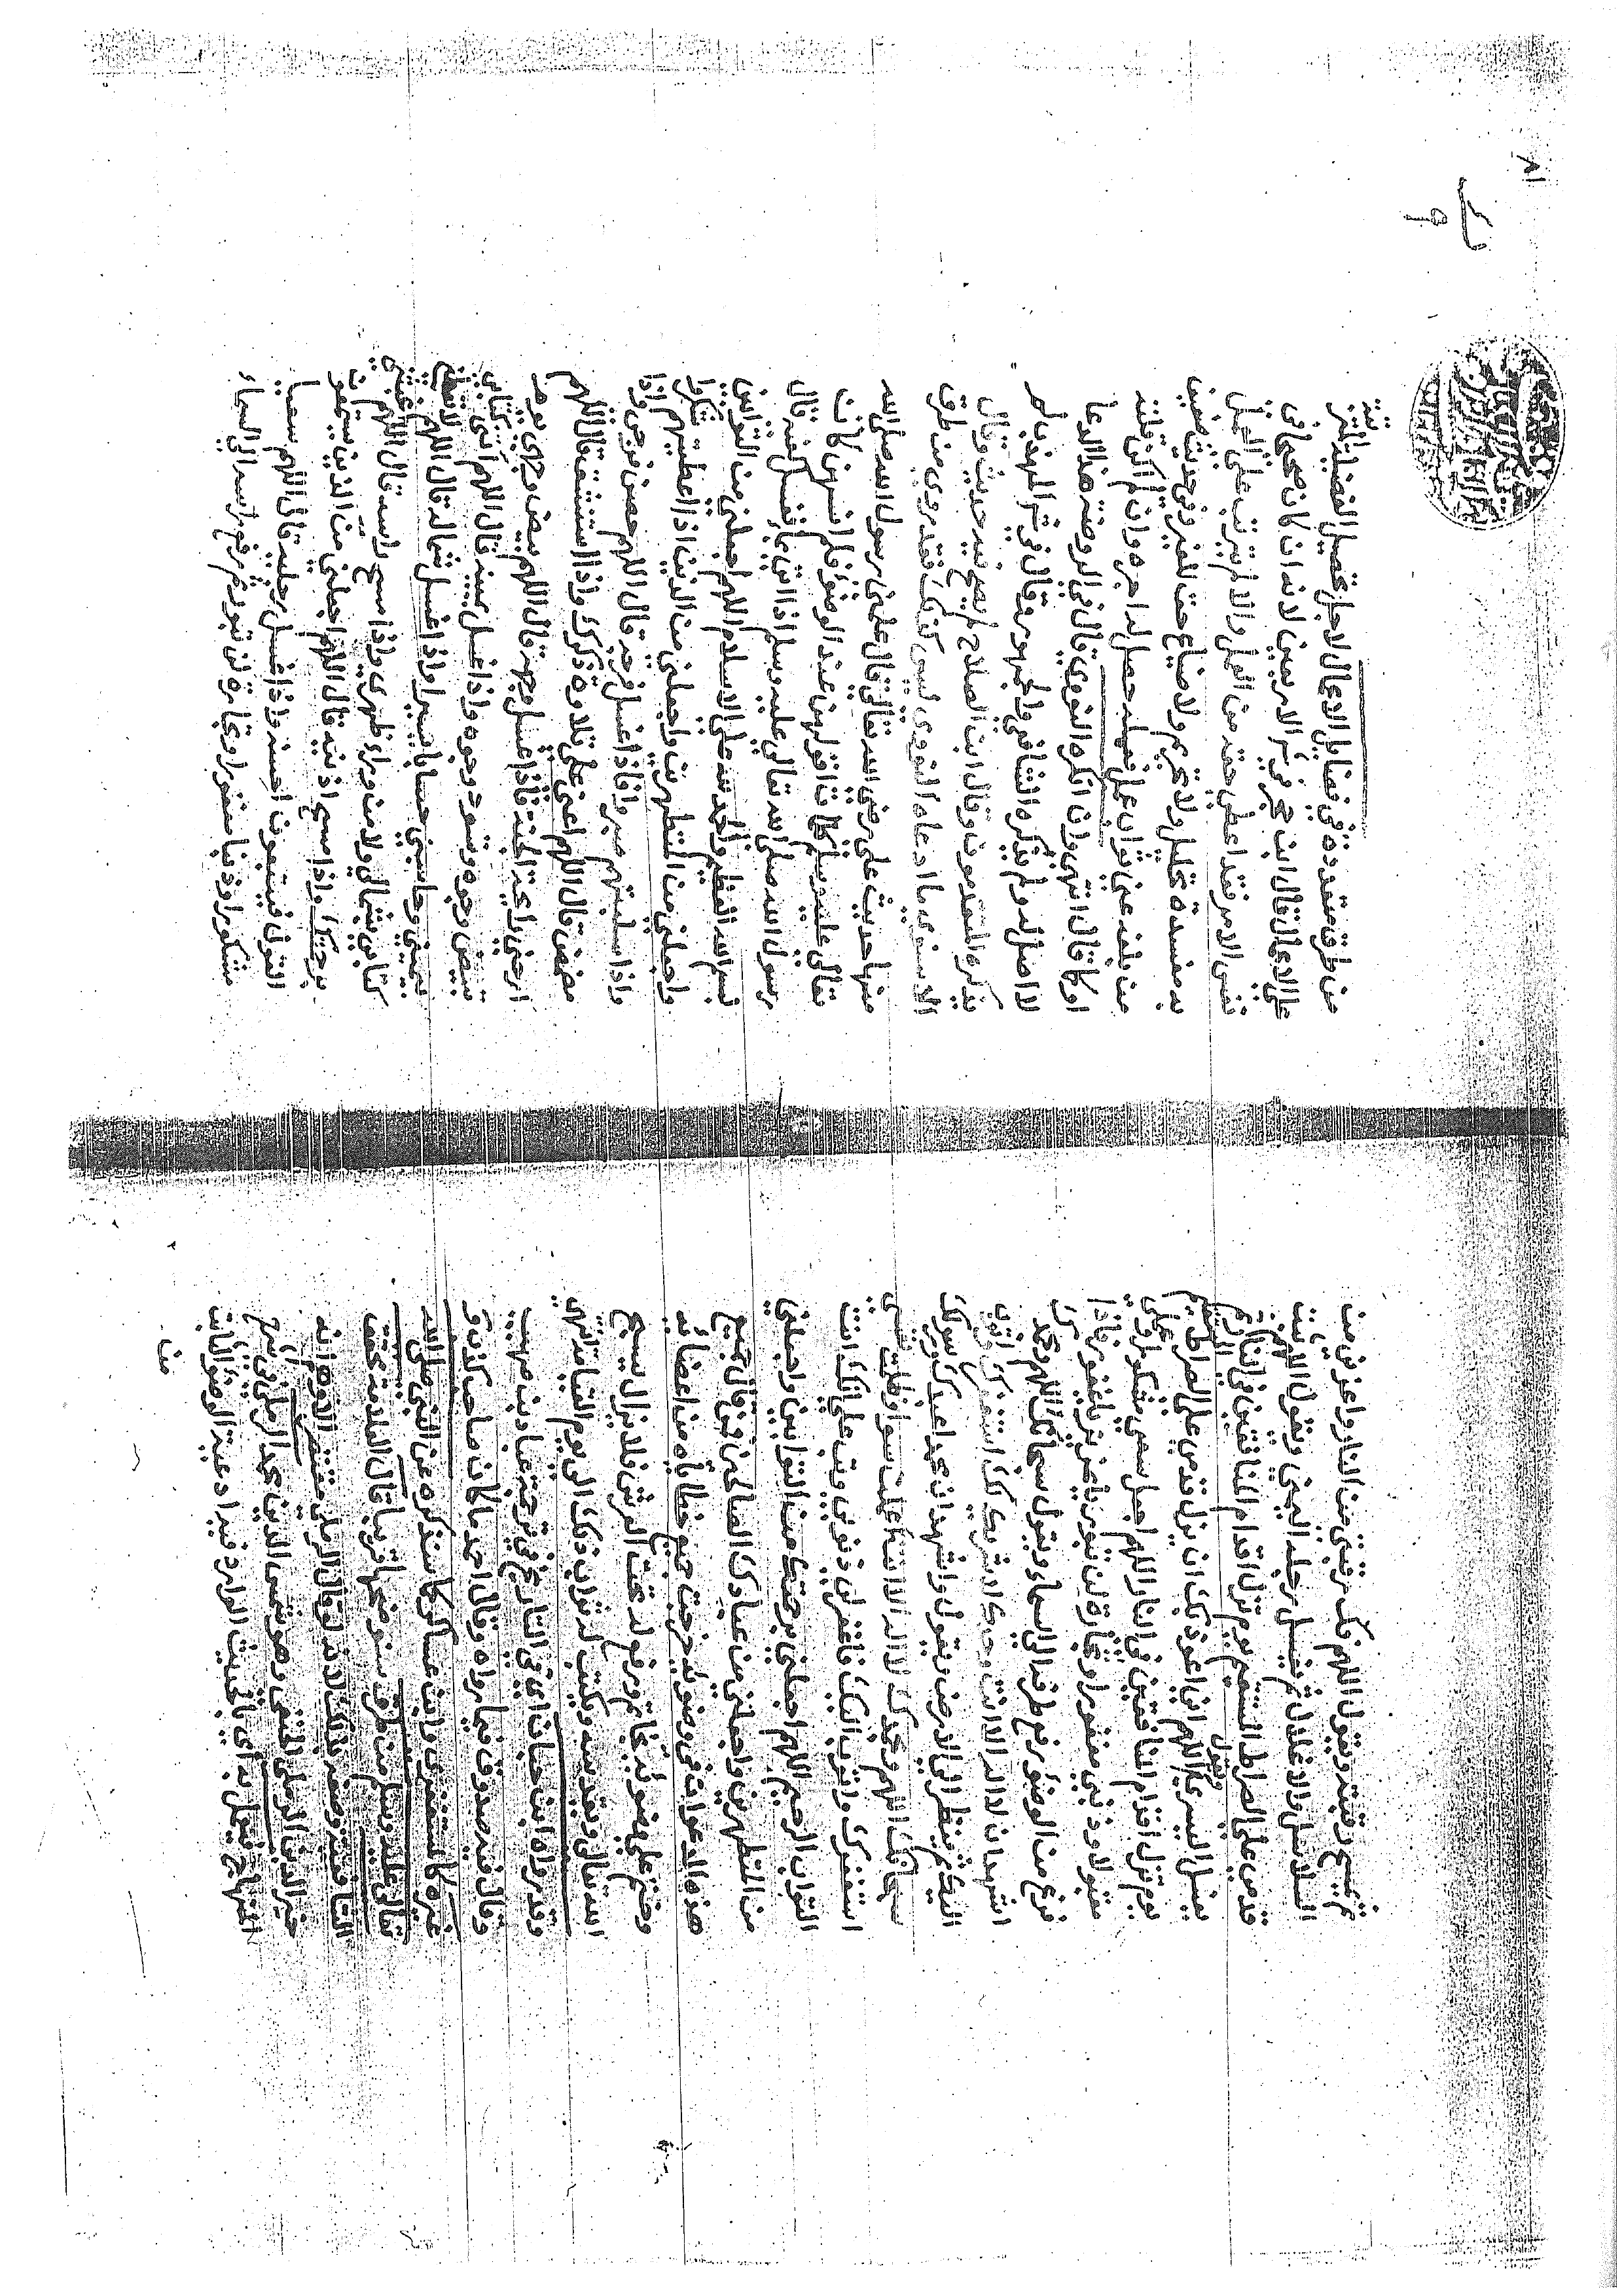 ثم يمسح رقبته ويقول اللهم فك رقبتي من النار واعوذ من
السلاسل والاغلال ثم يغسل رجله اليمنى ويقول اللهم ثبت
قدمي على الصراط المستقيم يوم تزل اقدام المنافقين في النار ثم
يغسل اليسرى ويقول اللهم اني اعوذ بك ان يزل قدمي على الصراط المستقيم
يوم تزل اقدام المنافقين في النار اللهم اجعل سعيي مشكورا وعملي
مقبولا وذنبي مغفورا وتجارة لن تبور يا عزيز يا غفور فاذا
فرغ من الوضوء رفع طرفه الى السماء ويقول سبحانك اللهم وبحمدك
اشهد ان لا اله الا انت وحدك لا شريك لك استغفرك واتوب
اليك ثم ينظر الى الارض ويقول واشهد ان محمدا عبدك ورسولك
سبحانك اللهم وبحمدك لا اله الا انت عملت سوا وظلمت نفسي
استغفرك واتوب اليك فاغفر لي ذنوبي وتب علي انك انت
التواب الرحيم اللهم اجعلني برحمتك من التوابين واجعلني
من المتطهرين واجعلني من عبادك الصالحين فمن قال جميع
هذه الدعوات في وضوئه خرجت جميع خطاياه من اعضائه
وختم على وضوئه بخاتم ورفع له تحت العرش فلا يزال يسبح
الله تعالى ويقدسه ويكتب له ثواب ذلك الى يوم القيامة انتهى
وقد رواه ابن حبان اي في التاريخ في ترجمة عباد بن صهيب
وقال فيه صدوق فيما يرواه وقال احمد ما كان صاحب كذب
غيره كالمستغفري وابن عساكر كما سنذكره عن النبي صلى الله
تعالى عليه وسلم من طرق سنوضحها قريبا قال العلامة محقق
الشافعية وصفته بذلك لانه لو قال الرملي مقتضى الاذى انه
خير الدين الرملي الحنفي وهو شمس الدين محمد الرملي في شرح
المنهاج فيعمل به اي بالحديث الوارد فيه ادعية الوضوء الثابت
من
من طرق متعددة في فضايل الاعمال لاجل تحصيل الفضيلة المترتبة
على الاعمال قال ابن حجر في شرح الاربعين لانه ان كان صحيحا في
نفس الامر فقد اعطى حقه من العمل والا لم يترتب على العمل
به مفسدة تحليل ولا تحريم ولا ضياع حق للغير وفي حديث ضعيف
من بلغه عني ثواب عمل فعمله حصل له اجره وان لم اكن قلته
او كما قال انتهى وان انكره النووي قال في الروضة هذا الدعا
لا اصل له ولم يذكره الشافعي والجمهور وقال في شرح المهذب لم
يذكره المتقدمون وقال ابن الصلاح لم يصح فيه حديث وقال
الاسنوي ما ادعاه النووي ليس كذلك فقد روي من طرق
منها حديث علي رضي الله تعالى قال علمني رسول الله صلى الله
تعالى عليه وسلم كلمات اقولهن عند الوضوء فلم انسهن كان
رسول الله صلى الله تعالى عليه وسلم اذا اتي بماء فغسل كفيه قال
بسم الله العظيم والحمد لله على الاسلام اللهم اجعلني من التوابين
واجعلني من المتطهرين واجعلني من الذين اذا اعطيتهم شكروا
واذا ابتليتهم صبروا فاذا غسل فرجه قال اللهم حصن فرجي واذا
مضمض قال اللهم اعني على تلاوة ذكرك واذا استنشق قال اللهم
ارحني رايحة الجنة فاذا غسل وجهه قال اللهم بيض وجهي يوم
تبيض وجوه وتسود وجوه واذا غسل يمينه قال اللهم اتني كتابي
بيميني وحاسبني حسابا يسيرا واذا غسل شماله قال اللهم لا تعطني
كتابي بشمالي ولا من وراء ظهري واذا مسح راسه قال اللهم غشني
برحمتك واذا مسح اذنيه قال اللهم اجعلني من الذين يستمعون
القول فيتبعون احسنه واذا غسل رجليه قال اللهم سعيا
مشكورا وذنبا مغفورا وتجارة لن تبور ثم رفع راسه الى السماء